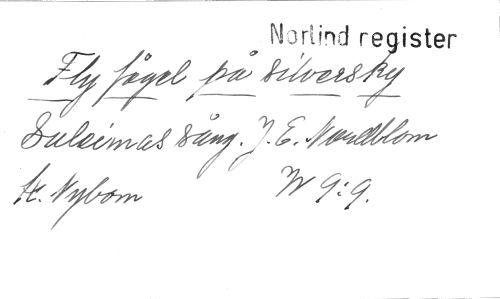 Norlind register
Fly fågel på silversky
Suleimas sång. J. E. Nordblom
K. Nybom W 9:9.